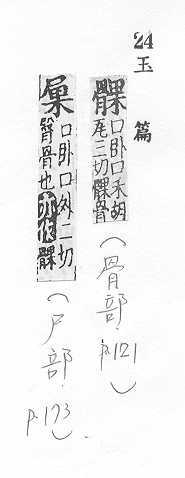 24 玉篇
髁 口卧口禾胡
瓦三切髁骨
(骨部 p.121)
㞅 口卧口外二切
髖骨也亦作髁
(尸部 p.193)